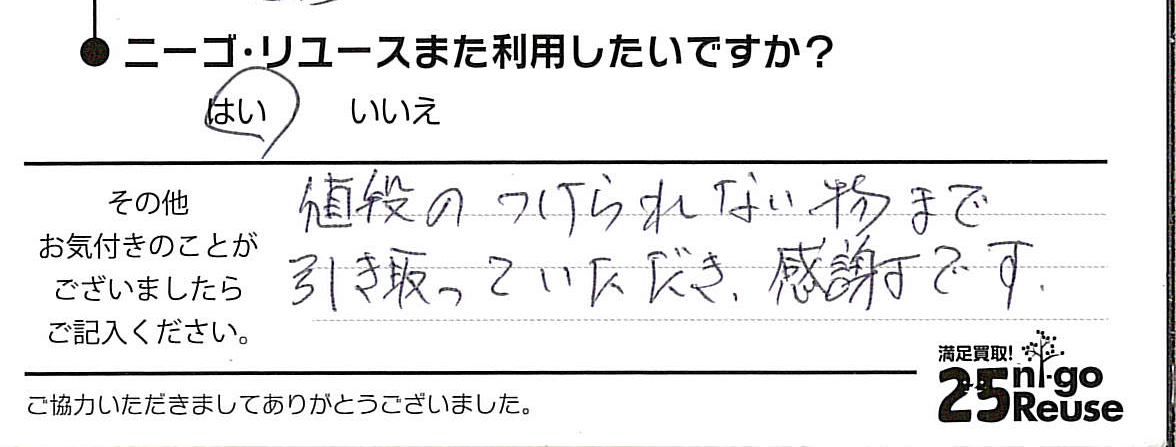 ニーゴ・リユースまた利用したいですか?
はい いいえ
その他
お気付きのことが
ございましたら
ご記入ください。
値段のつけられない物まで
引き取っていただき、感謝です.
満足買取!
25 ni-go
Reuse
ご協力いただきましてありがとうございました。